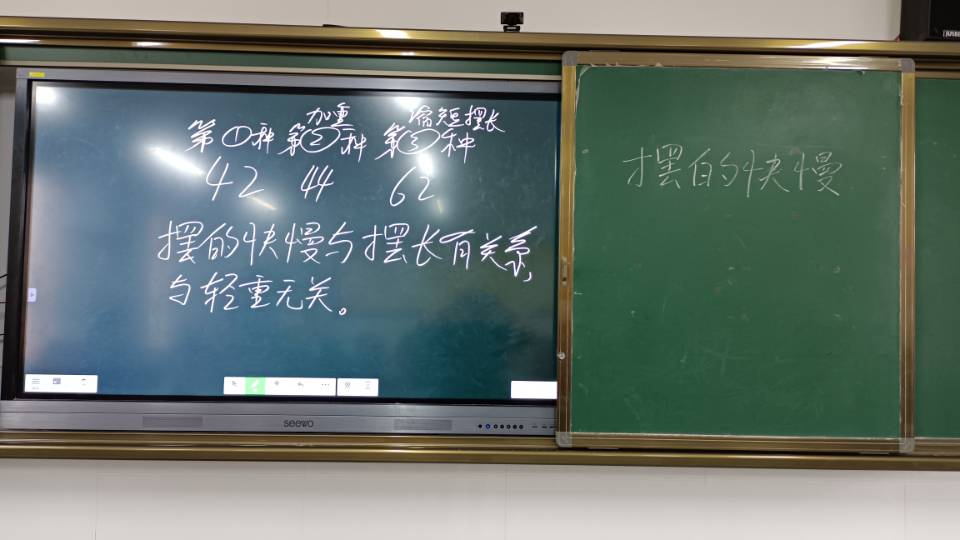 加重 缩短摆长
第①种 第②种 第③种
42 44 62
摆的快慢与摆长有关系,
与轻重无关。
摆的快慢
seewo